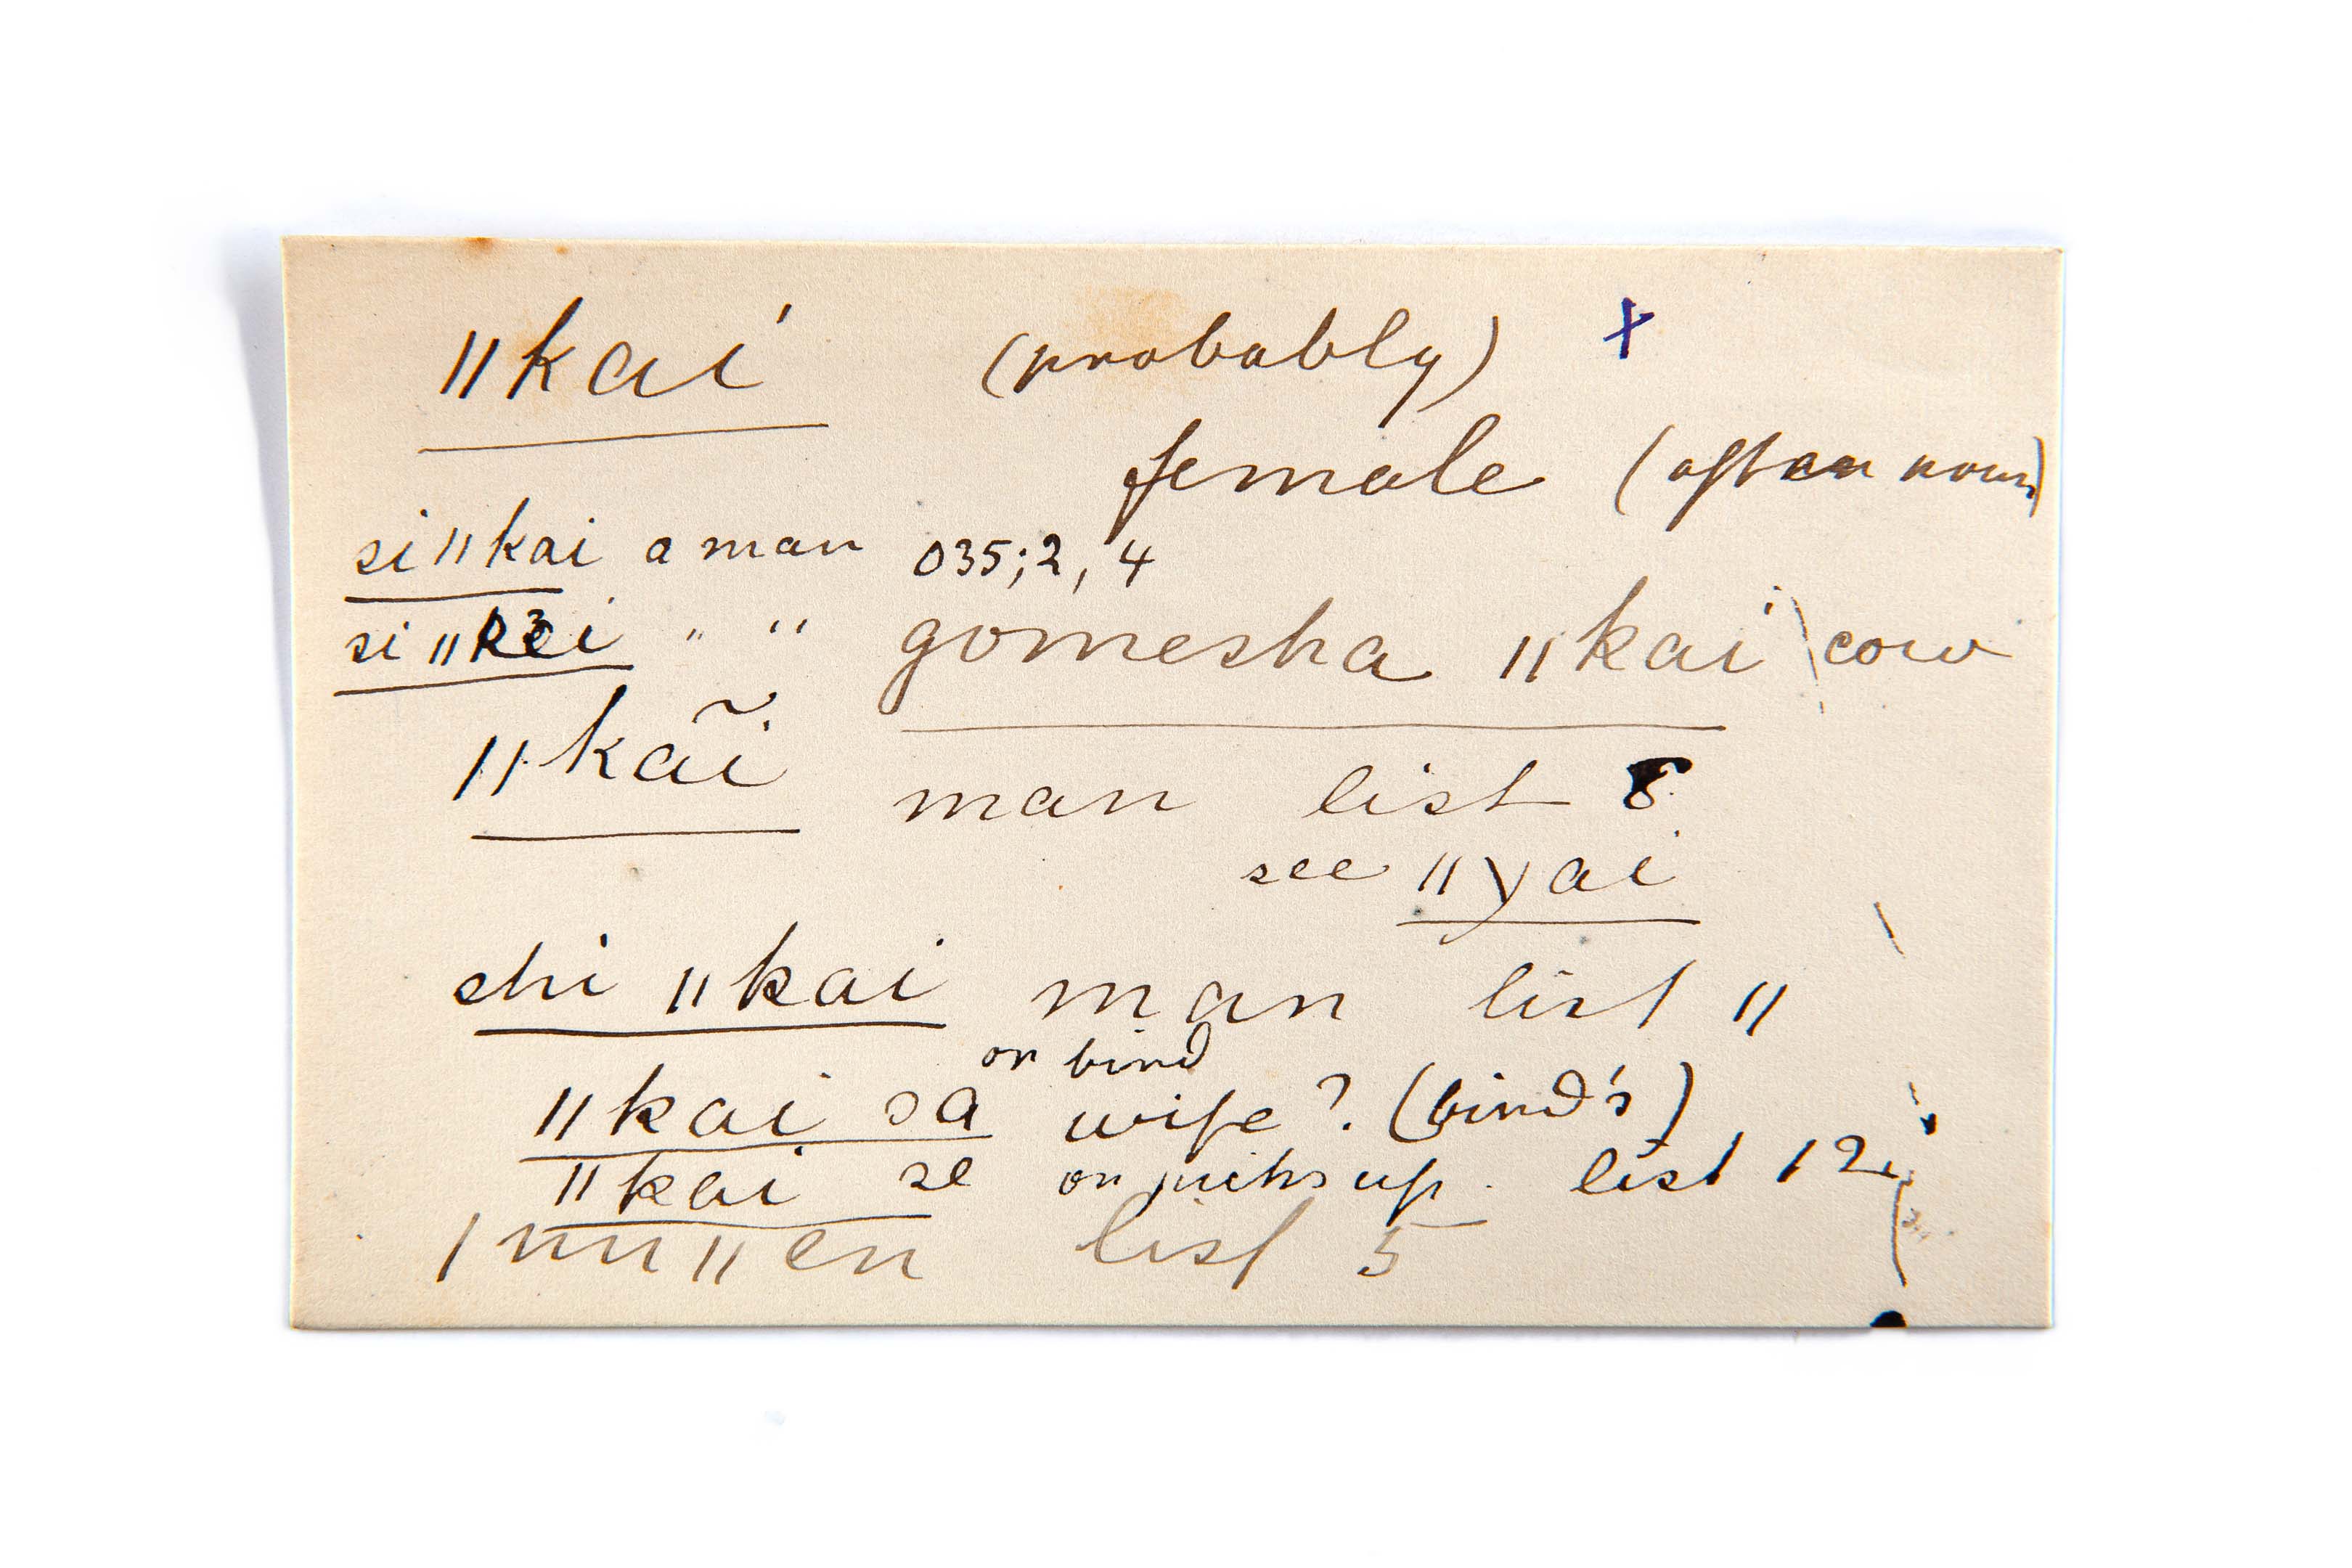 ǁkai (probably) +
female (often noun)
siǁkai a man 035;2, 4
siǁkei " " gomesha ǁkai cow
ǁkaĩ man list 8
see ǁyai
shi ǁkai man list 11
or bird
ǁkai sa wife? (bird's)
ǁkai se or picks up. list 12
list 5